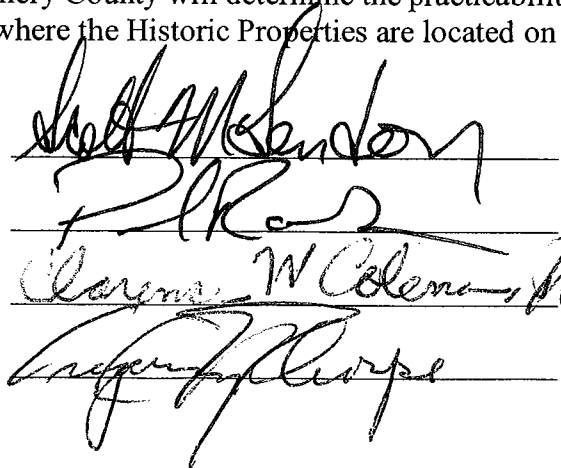 ery County will determine the practicabilit
where the Historic Properties are located on
Scott McLendon
Clarence W Coleman, 
Thorpe